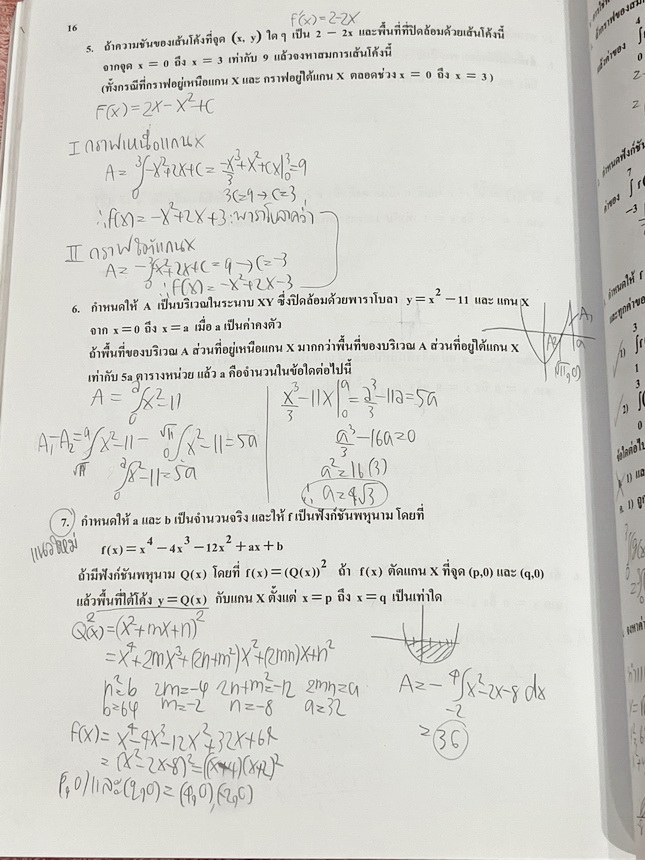 16
F'(x)=2-2x
5. ถ้าความชันของเส้นโค้งที่จุด (x, y) ใด ๆ เป็น 2 − 2x และพื้นที่ที่ปิดล้อมด้วยเส้นโค้งนี้
จากจุด x = 0 ถึง x = 3 เท่ากับ 9 แล้วจงหาสมการเส้นโค้งนี้
(ทั้งกรณีที่กราฟอยู่เหนือแกน X และ กราฟอยู่ใต้แกน X ตลอดช่วง x = 0 ถึง x = 3)
F(x)=2x-x²+c
I กราฟเหนือแกนX
A = ³∫₀-x²+2x+c = -x³/3+x²+cx|₀³=9
3c=9→c=3
∴f(x)=-x²+2x+3:พาราโบลาคว่ำ
II กราฟใต้แกนX
A=-³∫₀-x²+2x+c=9→c=-3
∴f(x)=-x²+2x-3
6. กำหนดให้ A เป็นบริเวณในระนาบ XY ซึ่งปิดล้อมด้วยพาราโบลา y=x²−11 และ แกน X
จาก x=0 ถึง x=a เมื่อ a เป็นค่าคงตัว
ถ้าพื้นที่ของบริเวณ A ส่วนที่อยู่เหนือแกน X มากกว่าพื้นที่ของบริเวณ A ส่วนที่อยู่ใต้แกน X
เท่ากับ 5a ตารางหน่วย แล้ว a คือจำนวนในข้อใดต่อไปนี้
A₁
A₂
a
(√11,0)
A = ᵃ∫₀x²-11
A₁-A₂=ᵃ∫√11 x²-11 - √11∫₀x²-11=5a
ᵃ∫₀x²-11=5a
x³/3-11x|₀ᵃ=a³/3-11a=5a
a³/3-16a=0
a²=16(3)
∴a=4√3
7. กำหนดให้ a และ b เป็นจำนวนจริง และให้ f เป็นฟังก์ชันพหุนาม โดยที่
แนวใหม่
f(x)=x⁴−4x³−12x²+ax+b
ถ้ามีฟังก์ชันพหุนาม Q(x) โดยที่ f(x)=(Q(x))² ถ้า f(x) ตัดแกน X ที่จุด (p,0) และ (q,0)
แล้วพื้นที่ใต้โค้ง y=Q(x) กับแกน X ตั้งแต่ x=p ถึง x=q เป็นเท่าใด
Q²(x)=(x²+mx+n)²
=x⁴+2mx³+(2n+m²)x²+(2mn)x+n²
n²=b 2m=-4 2n+m²=-12 2mn=a
b=64 m=-2 n=-8 a=32
F(x)=x⁴-4x³-12x²+32x+64
=(x²-2x-8)²=((x-4)(x+2))²
(p,0)และ(q,0)=(4,0),(-2,0)
A=-⁴∫₋₂x²-2x-8 dx
=36